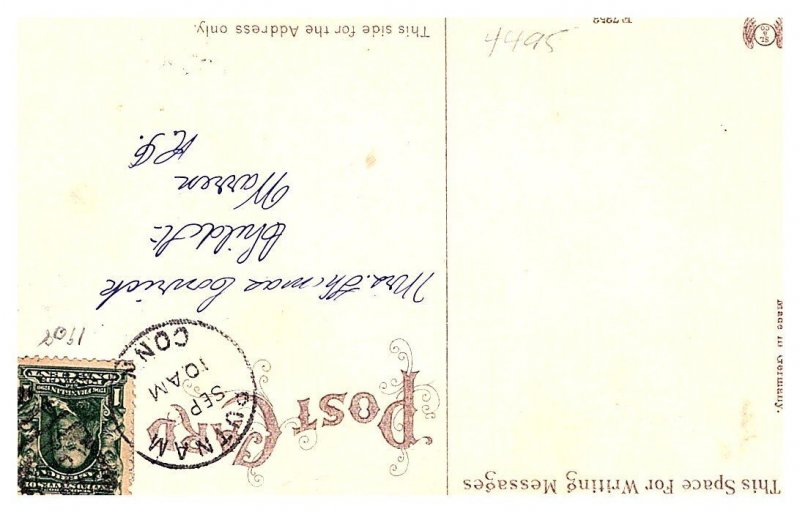 This Space For Writing Messages
POST CARD
PUTNAM
SEP
10 AM
CONN.
1
ONE CENT
1908
Mrs. Thomas Conrick
Child St.
Warren
R.I.
This side for the Address only.
Made in Germany.
4495